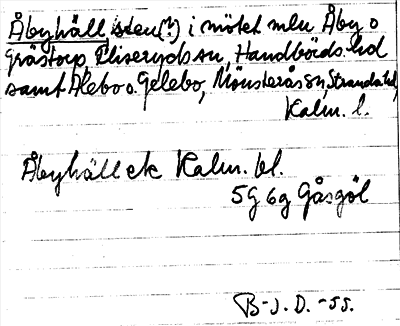 Åbyhäll, sten(?) i mötet mln Åby o
Gråstorp, Fliseryds sn, Handbörds hd
samt Åleboo. Gelebo, Mönsterås sn, Stranda hd,
Kalm. l.
Åbyhäll ek Kalm. bl.
5G 6g Gåsgöl
B-J.D. -55.